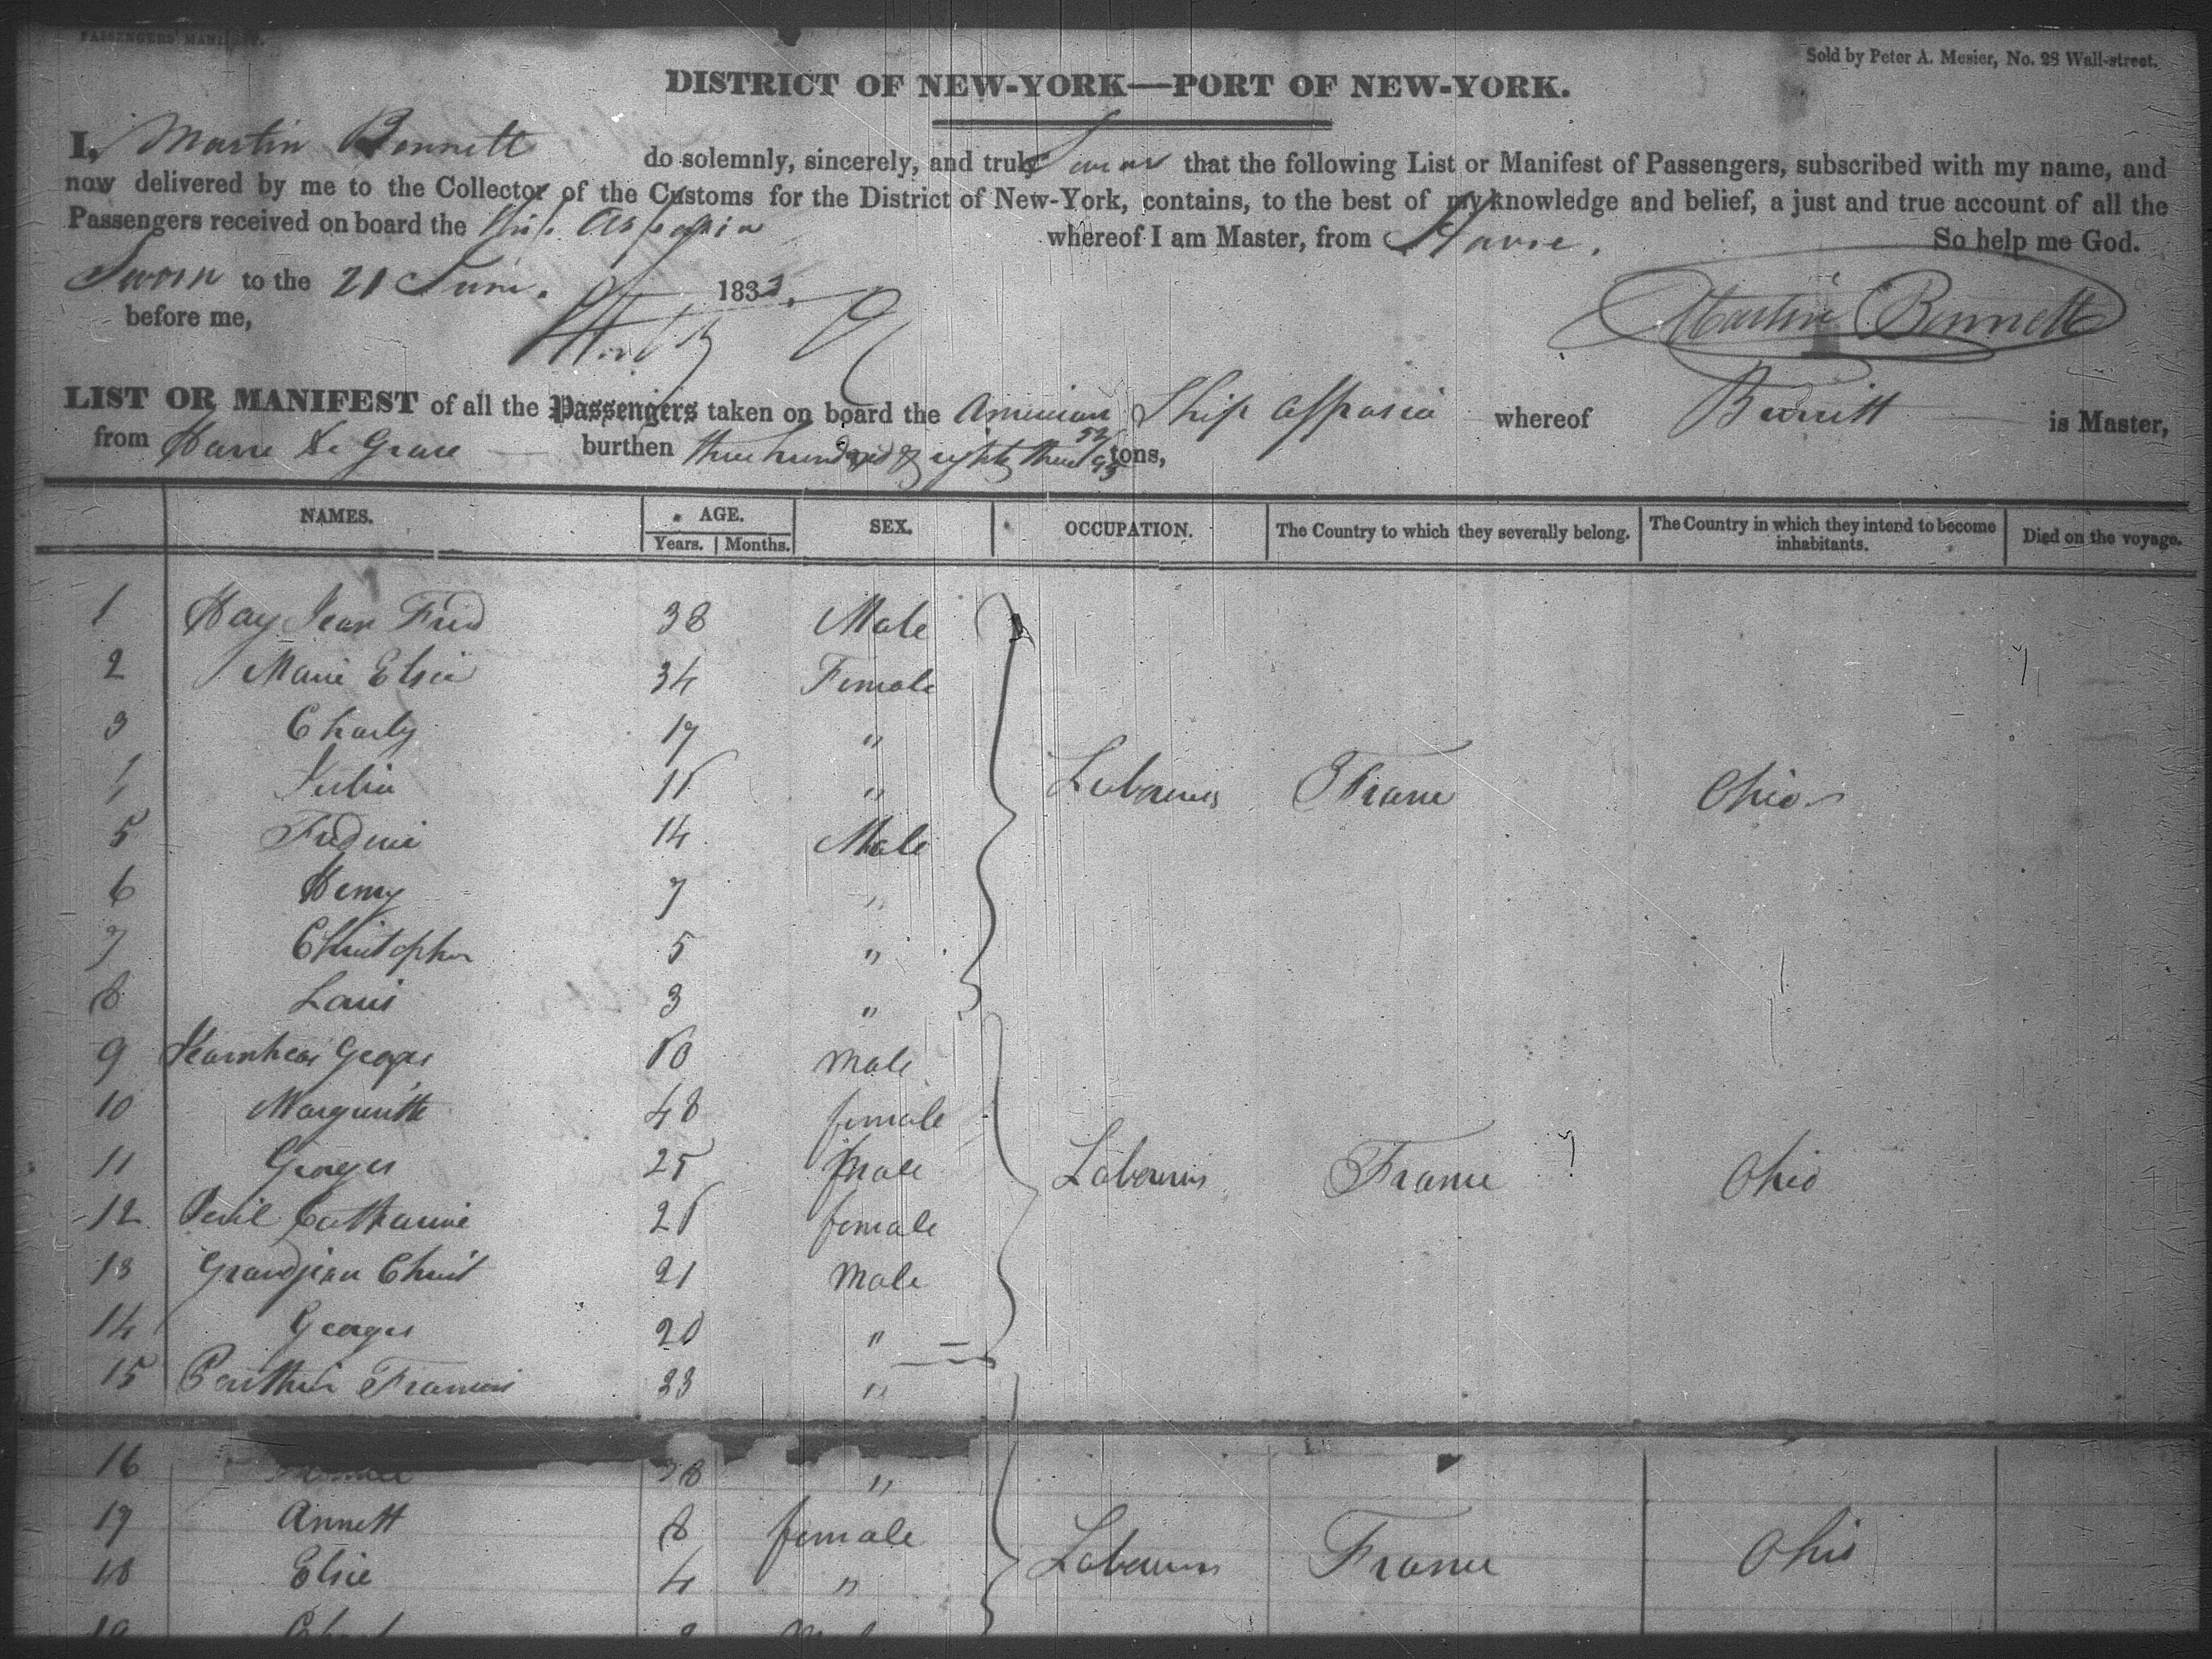 PASSENGERS' MANIFEST.
Sold by Peter A. Mesier, No. 28 Wall-street.
DISTRICT OF NEW-YORK—PORT OF NEW-YORK.
I, Martin Bennett do solemnly, sincerely, and truly Swear that the following List or Manifest of Passengers, subscribed with my name, and
now delivered by me to the Collector of the Customs for the District of New-York, contains, to the best of my knowledge and belief, a just and true account of all the
Passengers received on board the Ship Aspasia whereof I am Master, from Havre. So help me God.
Sworn to the 21 June. 1833.
before me,
Martin Bennett
LIST OR MANIFEST of all the Passengers taken on board the American Ship Aspasia whereof Bennett is Master,
from Havre De Grace burthen three hundred & eighty three 52/95 tons,
NAMES. AGE. SEX. OCCUPATION. The Country to which they severally belong. The Country in which they intend to become inhabitants. Died on the voyage.
Years. Months.
1 Hay Jean Fred 38 Male
2 Marie Elsie 34 Female
3 Charly 17 "
4 Julia 15 " Labourers France Ohio
5 Frederic 14 Male
6 Henry 7 "
7 Christopher 5 "
8 Louis 3 "
9 Georges 50 male
10 Margueritte 48 female
11 Georges 25 male Labourers France Ohio
12 Catharine 25 female
13 Grandjean Christ 21 Male
14 Georges 20 "
15 Francois 23 "
16 28 "
17 Annett 8 female
18 Elsie 4 " Labourers France Ohio
19